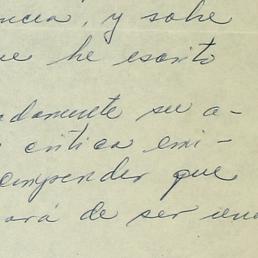 ncia, y sobre
ue he escrito
damente su a-
crítica emi-
comprender que
ará de ser una